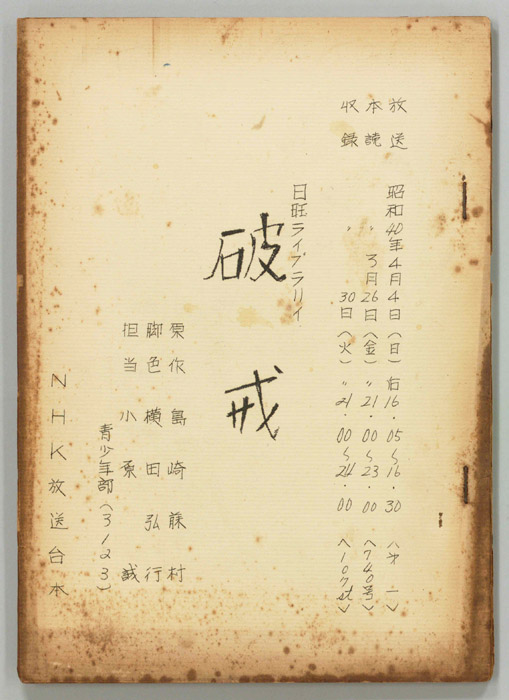 放送 昭和40年4月4日(日)后16・05〜16・30 (才一)
本読 〃 3月26日(金)〃21・00〜23・00 (740号)
収録 〃 30日(火)〃21・00〜24・00 (107st)
日旺ライブラリイ
破戒
原作 島崎藤村
脚色 横田弘行
担当 小原 誠
青少年部(3123)
NHK放送台本